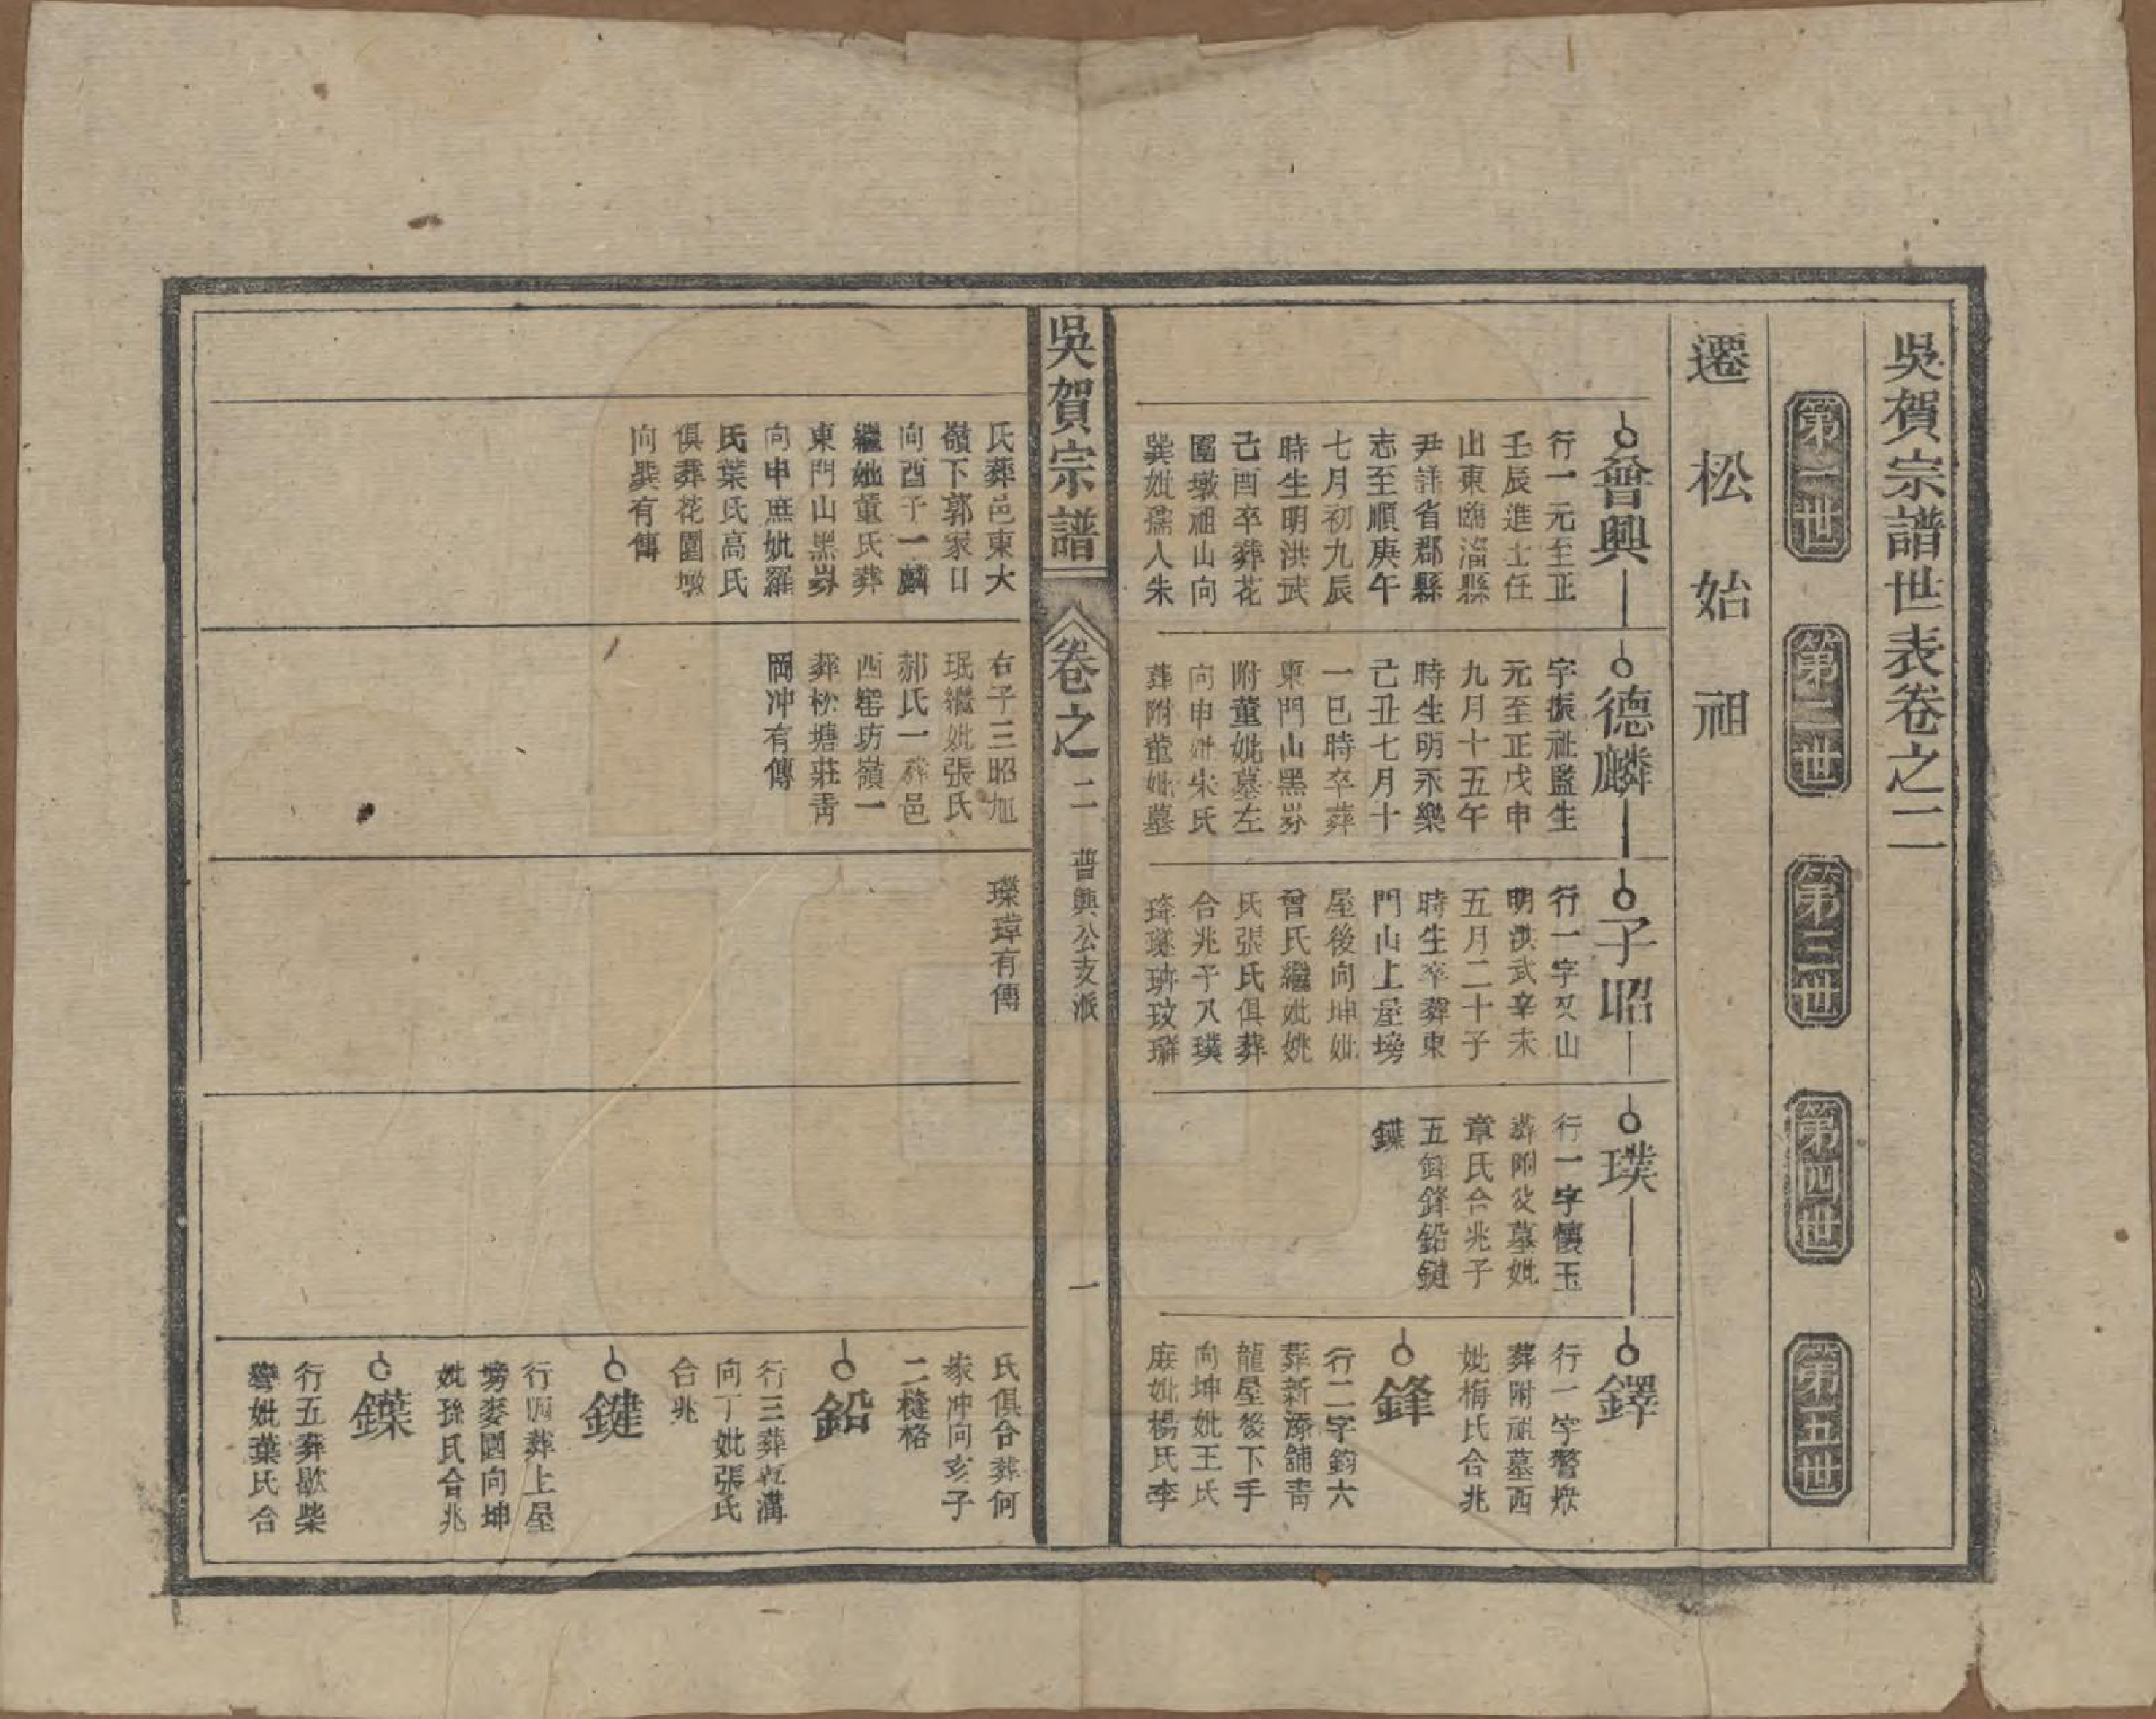 吳賀宗譜世表卷之二
第一世
第二世
第三世
第四世
第五世
遷松始祖
普興
行一元至正
壬辰進士任
山東臨淄縣
尹詳省郡縣
志至順庚午
七月初九辰
時生明洪武
己酉卒葬花
園墩祖山向
巽妣孺人朱
德麟
字振祉監生
元至正戊申
九月十五午
時生明永樂
己丑七月十
一巳時卒葬
東門山黑㟁
附董妣墓左
向申妣朱氏
葬附董妣墓
子昭
行一字 山
明洪武辛未
五月二十子
時生卒葬東
門山上屋塝
屋後向坤妣
曾氏繼妣姚
氏張氏俱葬
合兆子八璞
璞
行一字懷玉
葬附父墓妣
章氏合兆子
五鐸鋒鉛鍵
鏷
鐸
行一字警衆
葬附祖墓西
妣梅氏合兆
鋒
行二字鈞六
葬新添舖青
龍屋後下手
向坤妣王氏
庶妣楊氏李
吳賀宗譜
卷之二
普興公支派
一
氏葬邑東大
嶺下郭家口
向酉子一麟
繼妣董氏葬
東門山黑㟁
向申庶妣羅
氏葉氏高氏
俱葬花園墩
向巽有傳
右子三昭旭
珉繼妣張氏
郝氏一葬邑
西窑坊嶺一
葬松塘莊青
岡冲有傳
璨璋有傳
氏俱合葬何
家冲向亥子
二槰格
鉛
行三葬瓦溝
向丁妣張氏
合兆
鍵
行四葬上屋
塝麥園向坤
妣孫氏合兆
鏷
行五葬歇柴
巒妣葉氏合